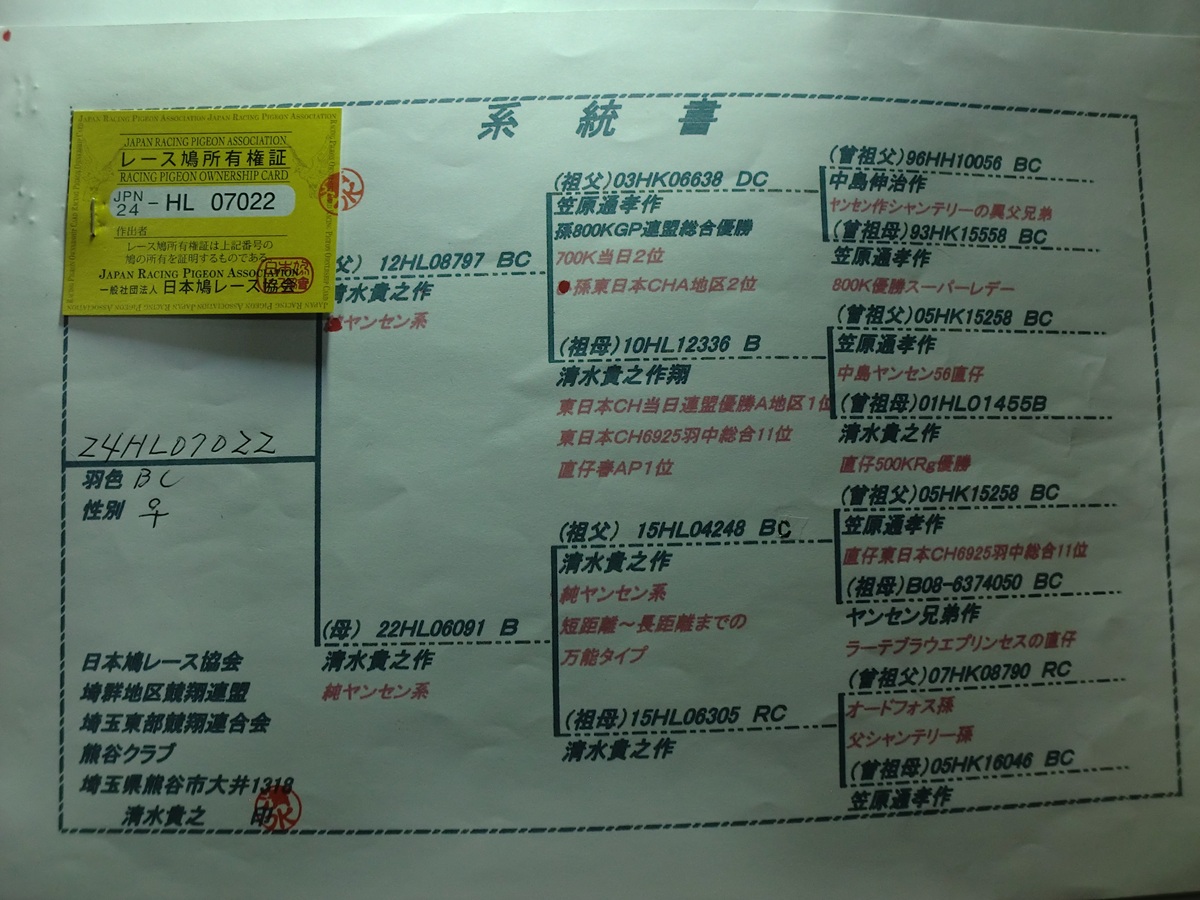 系統書
JAPAN RACING PIGEON ASSOCIATION JAPAN RACING PIGEON ASSOCIATION
JAPAN RACING PIGEON ASSOCIATION
レース鳩所有権証
RACING PIGEON OWNERSHIP CARD
JPN 24 - HL 07022
作出者
レース鳩所有権証は上記番号の
鳩の所有を証明するものである
JAPAN RACING PIGEON ASSOCIATION
一般社団法人 日本鳩レース協会
24HL07022
羽色 BC
性別 ♀
日本鳩レース協会
埼群地区競翔連盟
埼玉東部競翔連合会
熊谷クラブ
埼玉県熊谷市大井1318
清水貴之 印
父) 12HL08797 BC
清水貴之作
ヤンセン系
(母) 22HL06091 B
清水貴之作
純ヤンセン系
(祖父)03HK06638 DC
笠原通孝作
孫800KGP連盟総合優勝
700K当日2位
孫東日本CHA地区2位
(祖母)10HL12336 B
清水貴之作翔
東日本CH当日連盟優勝A地区1位
東日本CH6925羽中総合11位
直仔春AP1位
(祖父) 15HL04248 BC
清水貴之作
純ヤンセン系
短距離～長距離までの
万能タイプ
(祖母)15HL06305 RC
清水貴之作
(曾祖父)96HH10056 BC
中島伸治作
ヤンセン作シャンテリーの異父兄弟
(曾祖母)93HK15558 BC
笠原通孝作
800K優勝スーパーレデー
(曾祖父)05HK15258 BC
笠原通孝作
中島ヤンセン56直仔
(曾祖母)01HL01455B
清水貴之作
直仔500KRg優勝
(曾祖父)05HK15258 BC
笠原通孝作
直仔東日本CH6925羽中総合11位
(曾祖母)B08-6374050 BC
ヤンセン兄弟作
ラーテブラウエプリンセスの直仔
(曾祖父)07HK08790 RC
オードフォス孫
父シャンテリー孫
(曾祖母)05HK16046 BC
笠原通孝作